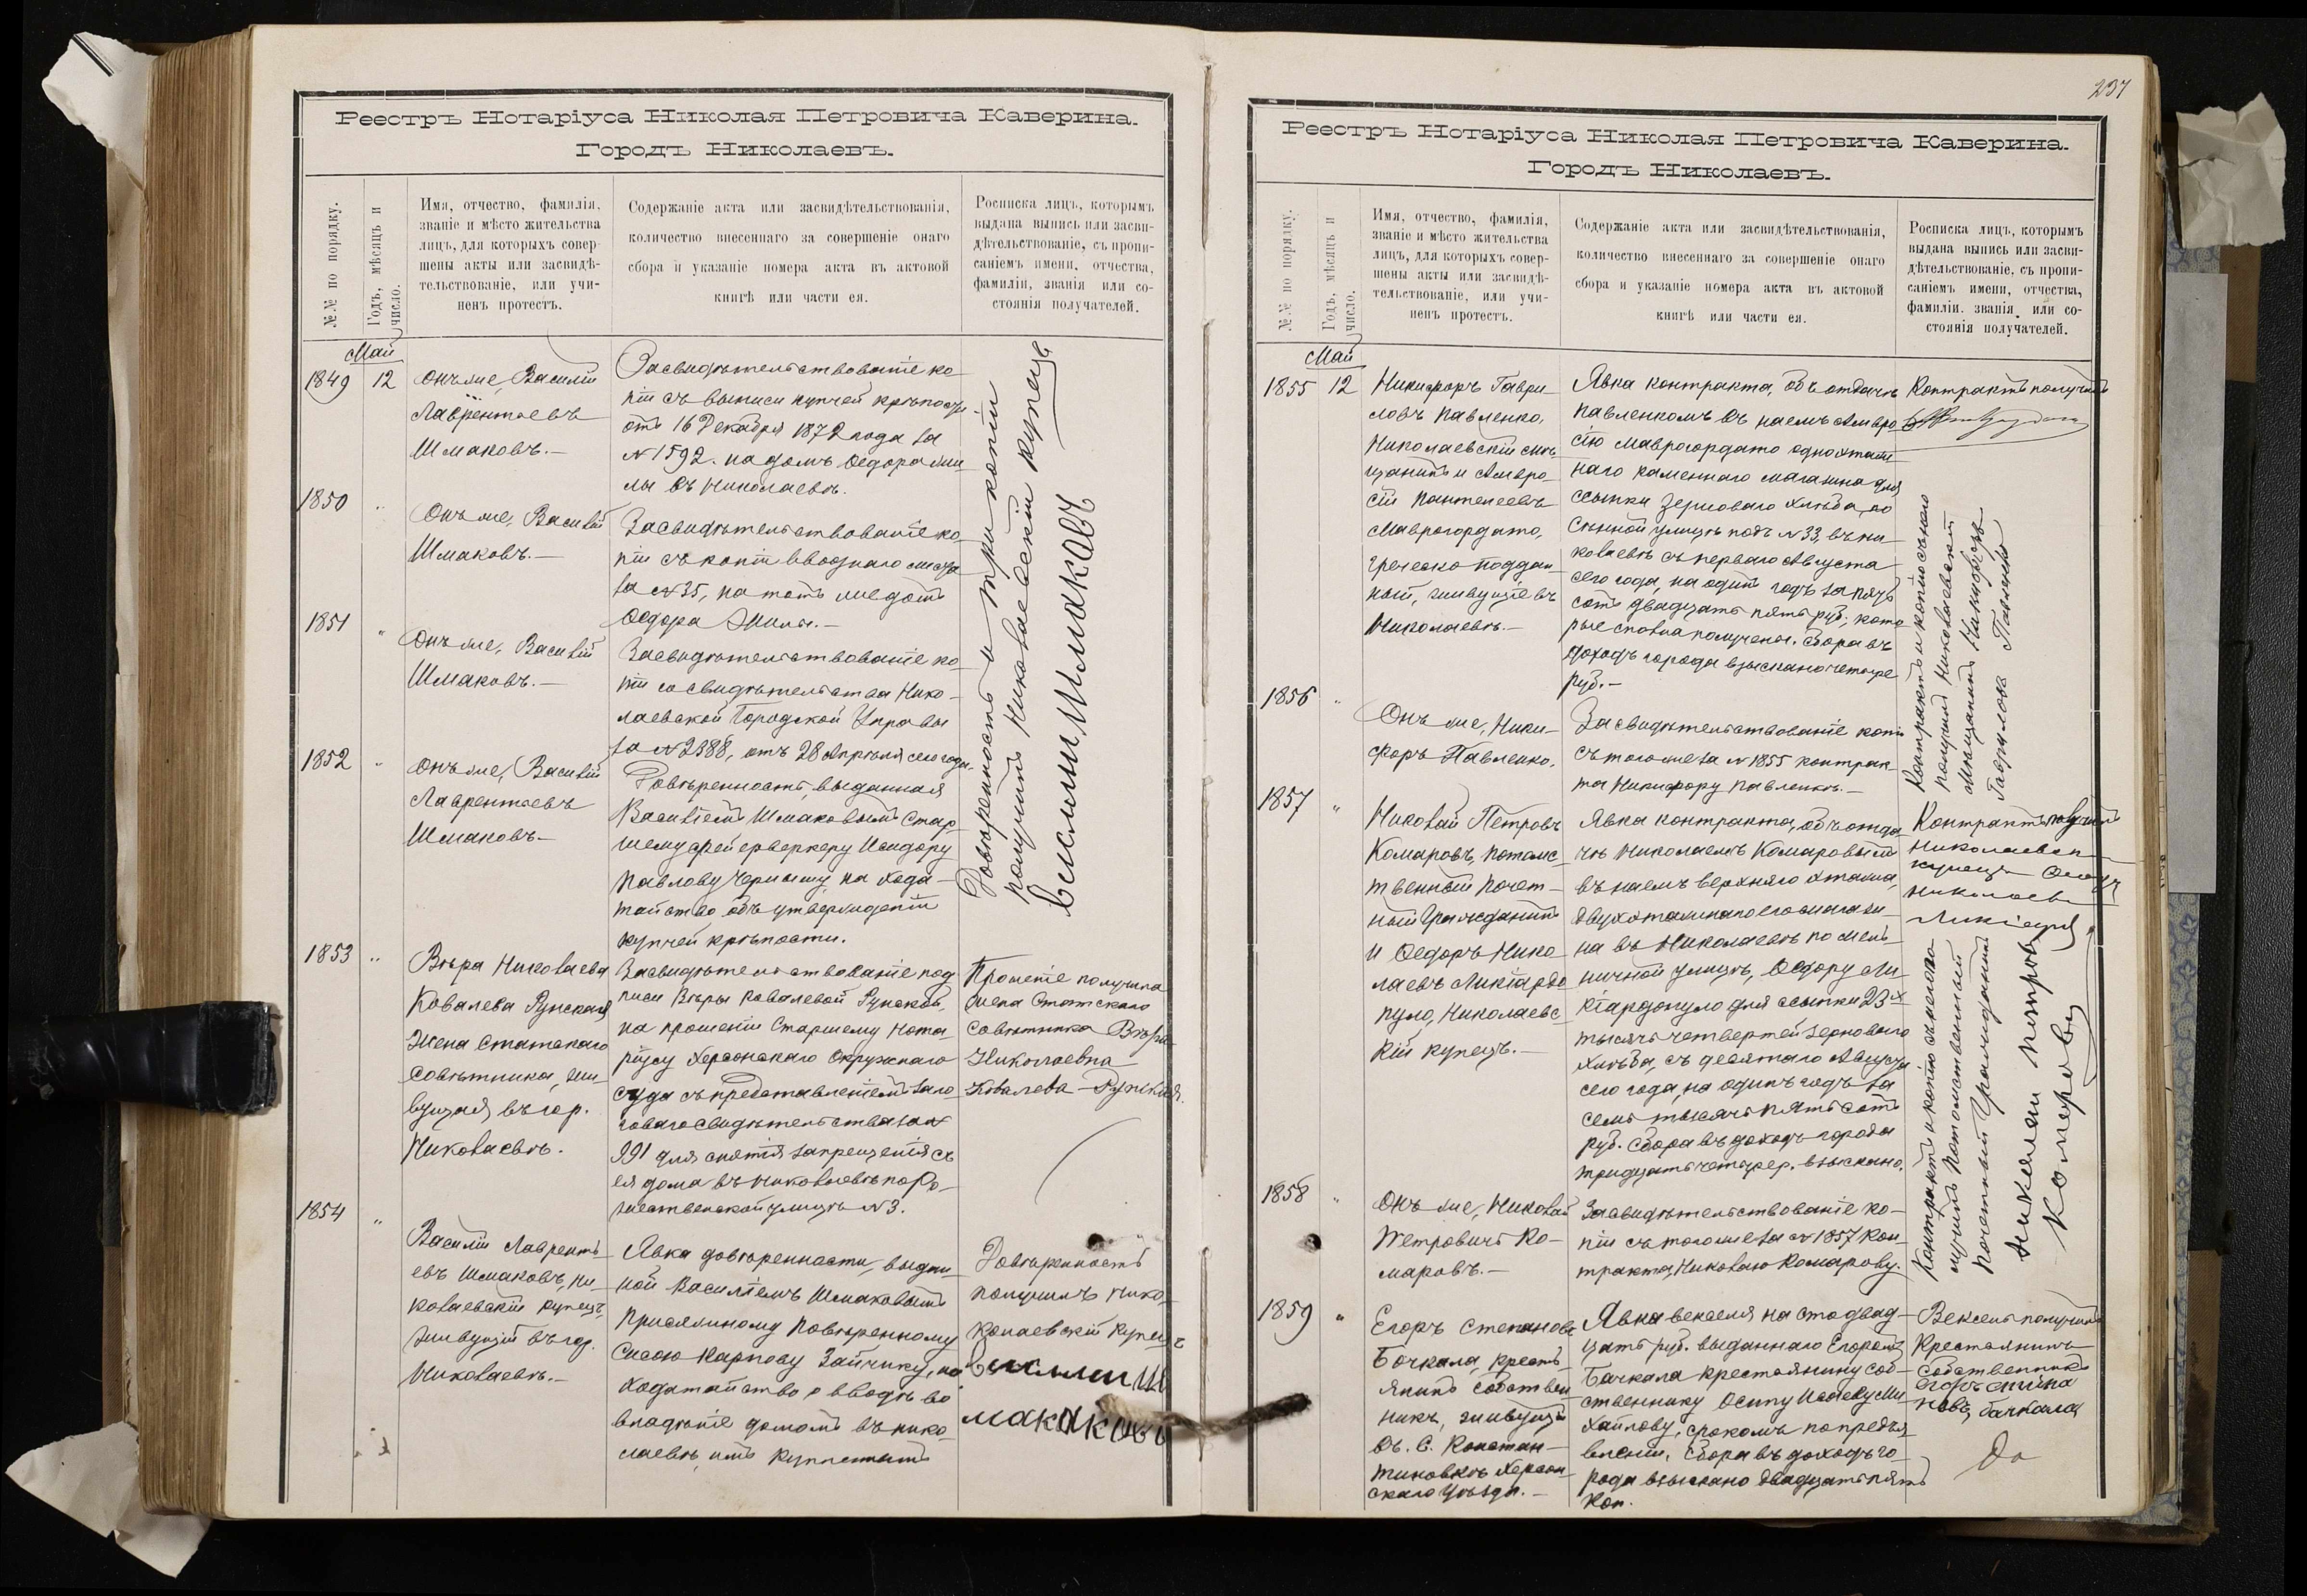 Реестръ Нотаріуса Николая Петровича Каверина.
Городъ Николаевъ.
№№ по порядку.
Годъ, мѣсяцъ и
число.
Имя, отчество, фамилія,
званіе и мѣсто жительства
лицъ, для которыхъ совер-
шены акты или засвидѣ-
тельствованіе, или учи-
ненъ протестъ.
Содержаніе акта или засвидѣтельствованія,
количество внесеннаго за совершеніе онаго
сбора и указаніе номера акта въ актовой
книгѣ или части ея.
Росписка лицъ, которымъ
выдана выпись или засви-
дѣтельствованіе, съ пропи-
саніемъ имени, отчества,
фамиліи, званія или со-
стоянія получателей.
Май
1849
12
Онъ же, Василій
Лаврентьевъ
Шмаковъ.—
Засвидѣтельствованіе ко-
піи съ выписи купчей крѣпости
отъ 16 Декабря 1872 года за
№ 1592. на домъ Ѳедора
въ Николаевѣ.
1850
"
Онъ же, Василій
Шмаковъ.—
Засвидѣтельствованіе ко-
піи съ копіи вводнаго листа
за № 35, на тотъ же домъ
Ѳедора
1851
"
Онъ же, Василій
Шмаковъ.—
Засвидѣтельствованіе ко-
піи со свидѣтельства Нико-
лаевской Городской Управы
за № 2388, отъ 28 Апрѣля сего года.
1852
"
Онъ же, Василій
Лаврентьевъ
Шмаковъ—
Довѣренность, выданная
Василіемъ Шмаковымъ Стар-
шему фейерверкеру Исидору
Павлову Чернышу, на хода-
тайство объ утвержденіи
купчей крѣпости.
Довѣренность и три копіи
получилъ Николаевскій купецъ
Василий Шмаковъ
1853
"
Вѣра Николаева
Ковалева Рунская
Жена Статскаго
Совѣтника, жи-
вущая въ гор.
Николаевѣ.
Засвидѣтельствованіе под-
писи Вѣры Ковалевой Рунской,
на прошеніи Старшему Нота-
ріусу Херсонскаго Окружнаго
Суда съ представленіемъ зало-
говаго свидѣтельства за №
991 для снятія запрещенія съ
ея дома въ Николаевѣ по Ро-
жественской улицѣ № 3.
Прошеніе получила
жена Статскаго
Совѣтника Вѣра
Николаевна
Ковалева-Рунская.
1854
"
Василій Лавренть-
евъ Шмаковъ, Ни-
колаевскій купецъ,
живущій въ гор.
Николаевѣ.—
Явка довѣренности, выдан-
ной Василіемъ Шмаковымъ
Присяжному Повѣренному
Сысою Карпову Зайчику, на
ходатайство о вводѣ во
владѣніе домомъ въ Нико-
лаевѣ, имъ
Довѣренность
получилъ Нико-
лаевскій купецъ
Василий Ш
макаковъ
237
Реестръ Нотаріуса Николая Петровича Каверина.
Городъ Николаевъ.
№№ по порядку.
Годъ, мѣсяцъ и
число.
Имя, отчество, фамилія,
званіе и мѣсто жительства
лицъ, для которыхъ совер-
шены акты или засвидѣ-
тельствованіе, или учи-
ненъ протестъ.
Содержаніе акта или засвидѣтельствованія,
количество внесеннаго за совершеніе онаго
сбора и указаніе номера акта въ актовой
книгѣ или части ея.
Росписка лицъ, которымъ
выдана выпись или засви-
дѣтельствованіе, съ пропи-
саніемъ имени, отчества,
фамиліи. званія или со-
стоянія получателей.
Май
1855
12
Никифоръ Гаври-
ловъ Павленко,
Николаевскій мѣ-
щанинъ и Амвро-
сій Пантелеевъ
Маврогордато,
греческо-поддан-
ный, живущіе въ
Николаевѣ.—
Явка контракта, объ отдачѣ
Павленкомъ въ наемъ Амвро-
сію Маврогордато одноэтаж-
наго каменнаго магазина для
ссыпки зерноваго хлѣба, по
Сѣнной улицѣ подъ № 33, въ Ни-
колаевѣ съ перваго Августа
сего года, на одинъ годъ за пять
сотъ двадцать пять руб., кото-
рые сполна получены. Сбора въ
доходъ города взыскано четыре
руб.—
Контрактъ получилъ
1856
"
Онъ же, Ники-
форъ Павленко.
Засвидѣтельствованіе копіи
съ того же за № 1855 контрак-
та Никифору Павленкѣ.—
Контрактъ и копію съ него
получилъ Николаевскій
мѣщанинъ Никифоръ
Гавриловъ Павленко
1857
"
Николай Петровъ
Комаровъ, потомс-
твенный Почет-
ный Гражданинъ
и Ѳедоръ Нико-
лаевъ Ликіардо
пуло, Николаевс-
кій купецъ.—
Явка контракта, объ отда-
чѣ Николаемъ Комаровымъ
въ наемъ верхняго этажа,
двухэтажнаго его магази-
на въ Николаевѣ по Мель-
ничной улицѣ, Ѳедору Ли-
кіардопуло для ссыпки 23х
тысячъ четвертей зерноваго
хлѣба, съ десятаго Августа
сего года, на одинъ годъ за
семь тысячъ пять сотъ
руб. Сбора въ доходъ города
тридцать четыре р. взыскано.
Контрактъ получилъ
Николаевскій
купецъ
Николаевъ
1858
"
Онъ же, Николай
Петровичъ Ко-
маровъ.—
Засвидѣтельствованіе ко-
піи съ того же за № 1857 кон-
тракта, Николаю Комарову.
Контрактъ и копію съ него по-
лучилъ потомственный
почетный Гражданинъ
Николай Петровъ
Комаровъ
1859
"
Егоръ Степановъ
Бочкала, кресть-
янинъ собствен-
никъ, живущій
въ. С. Констан-
тиновкѣ Херсон-
скаго Уѣзда.—
Явка векселя на сто двад-
цать руб. выданнаго Егоромъ
Бачкала крестьянину соб-
ственнику Осипу Исаеву Ми-
хайлову, срокомъ по предъя-
вленіи, Сбора въ доходъ го-
рода взыскано двадцать пять
коп.
Вексель получилъ
Крестьянинъ
Собственникъ